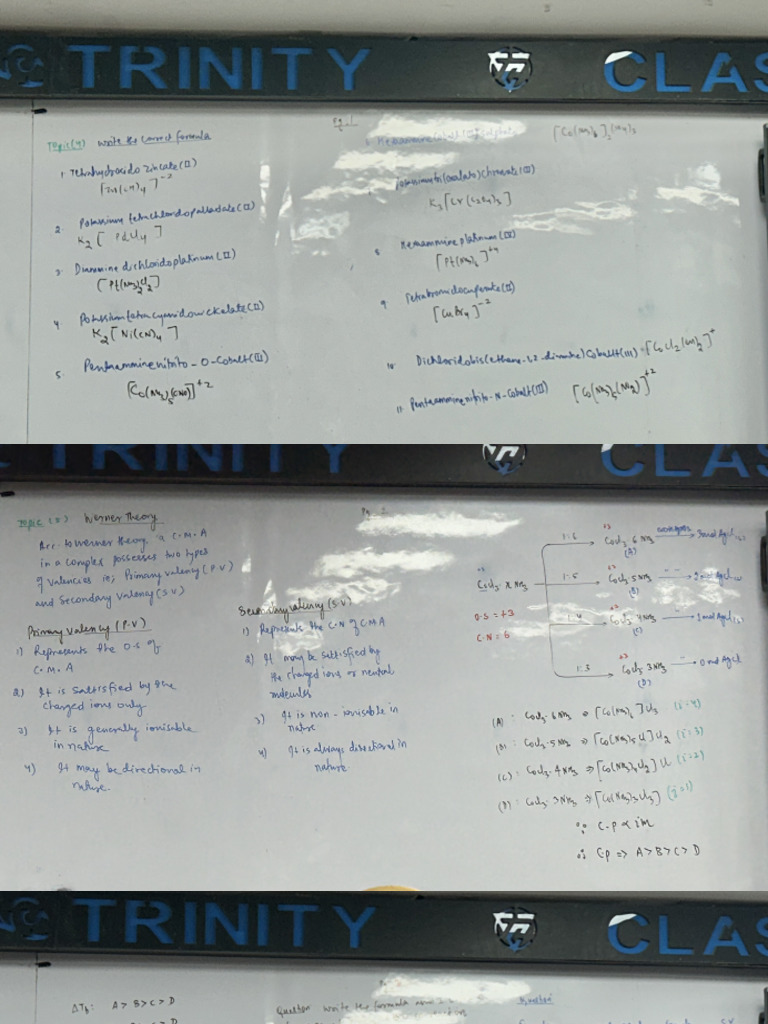 TRINITY CLAS
Pg. 1
Topic(4) Write the correct formula
1. Tetrahydroxido Zincate(II)
2. Potassium tetrachloridopalladate(II)
K2[PdCl4]
3. Diammine dichloridoplatinum(II)
[Pt(NH3)2Cl2]
4. Potassium tetracyanidonickelate(II)
K2[Ni(CN)4]
5. Pentaamminenitrito-O-Cobalt(III)
[Co(NH3)5(ONO)]+2
[Co(NH3)6]2(SO4)3
K3[Cr(C2O4)3]
8 Hexaammine platinum(IV)
[Pt(NH3)6]+4
9. Tetrabromidocuprate(II)
[CuBr4]-2
10 Dichloridobis(ethane-1,2-diamine)Cobalt(III) = [CoCl2(en)2]+
11. Pentaamminenitrito-N-Cobalt(III) [Co(NH3)5(NO2)]+2
TRINITY CLAS
Topic (5) Werner Theory
Acc. to werner theory, a C.M.A
in a complex possesses two types
of valencies ie; Primary valency (P.V)
and Secondary valency (S.V)
Primary Valency (P.V)
1) Represents the O.S of
C.M.A
2) It is sattisfied by the
charged ions only
3) It is generally ionisable
in nature
4) It may be directional in
nature.
Secondary valency (S.V)
1) Represents the C.N of C.M.A
2) It may be sattisfied by
the charged ions or neutral
molecules
3) It is non-ionisable in
nature
4) It is always directional in
nature
CoCl3. x NH3
O.S = +3
C.N = 6
1:6 +3 CoCl3. 6 NH3 3 mol AgCl(s)
(A)
1:5 +3 CoCl3. 5 NH3 2 mol AgCl(s)
(B)
1:4 +3 CoCl3. 4 NH3 1 mol AgCl(s)
(C)
1:3 +3 CoCl3. 3 NH3 0 mol AgCl
(D)
(A) : CoCl3. 6NH3 ⇒ [Co(NH3)6]Cl3 (i=4)
(B) : CoCl3. 5NH3 ⇒ [Co(NH3)5Cl]Cl2 (i=3)
(C) : CoCl3. 4NH3 ⇒ [Co(NH3)4Cl2]Cl (i=2)
(D) : CoCl3. 3NH3 ⇒ [Co(NH3)3Cl3] (i=1)
∵ C.P ∝ iM
∴ C.P => A>B>C>D
TRINITY CLAS
ΔTb: A > B > C > D
Question write the formula
> B > C > D